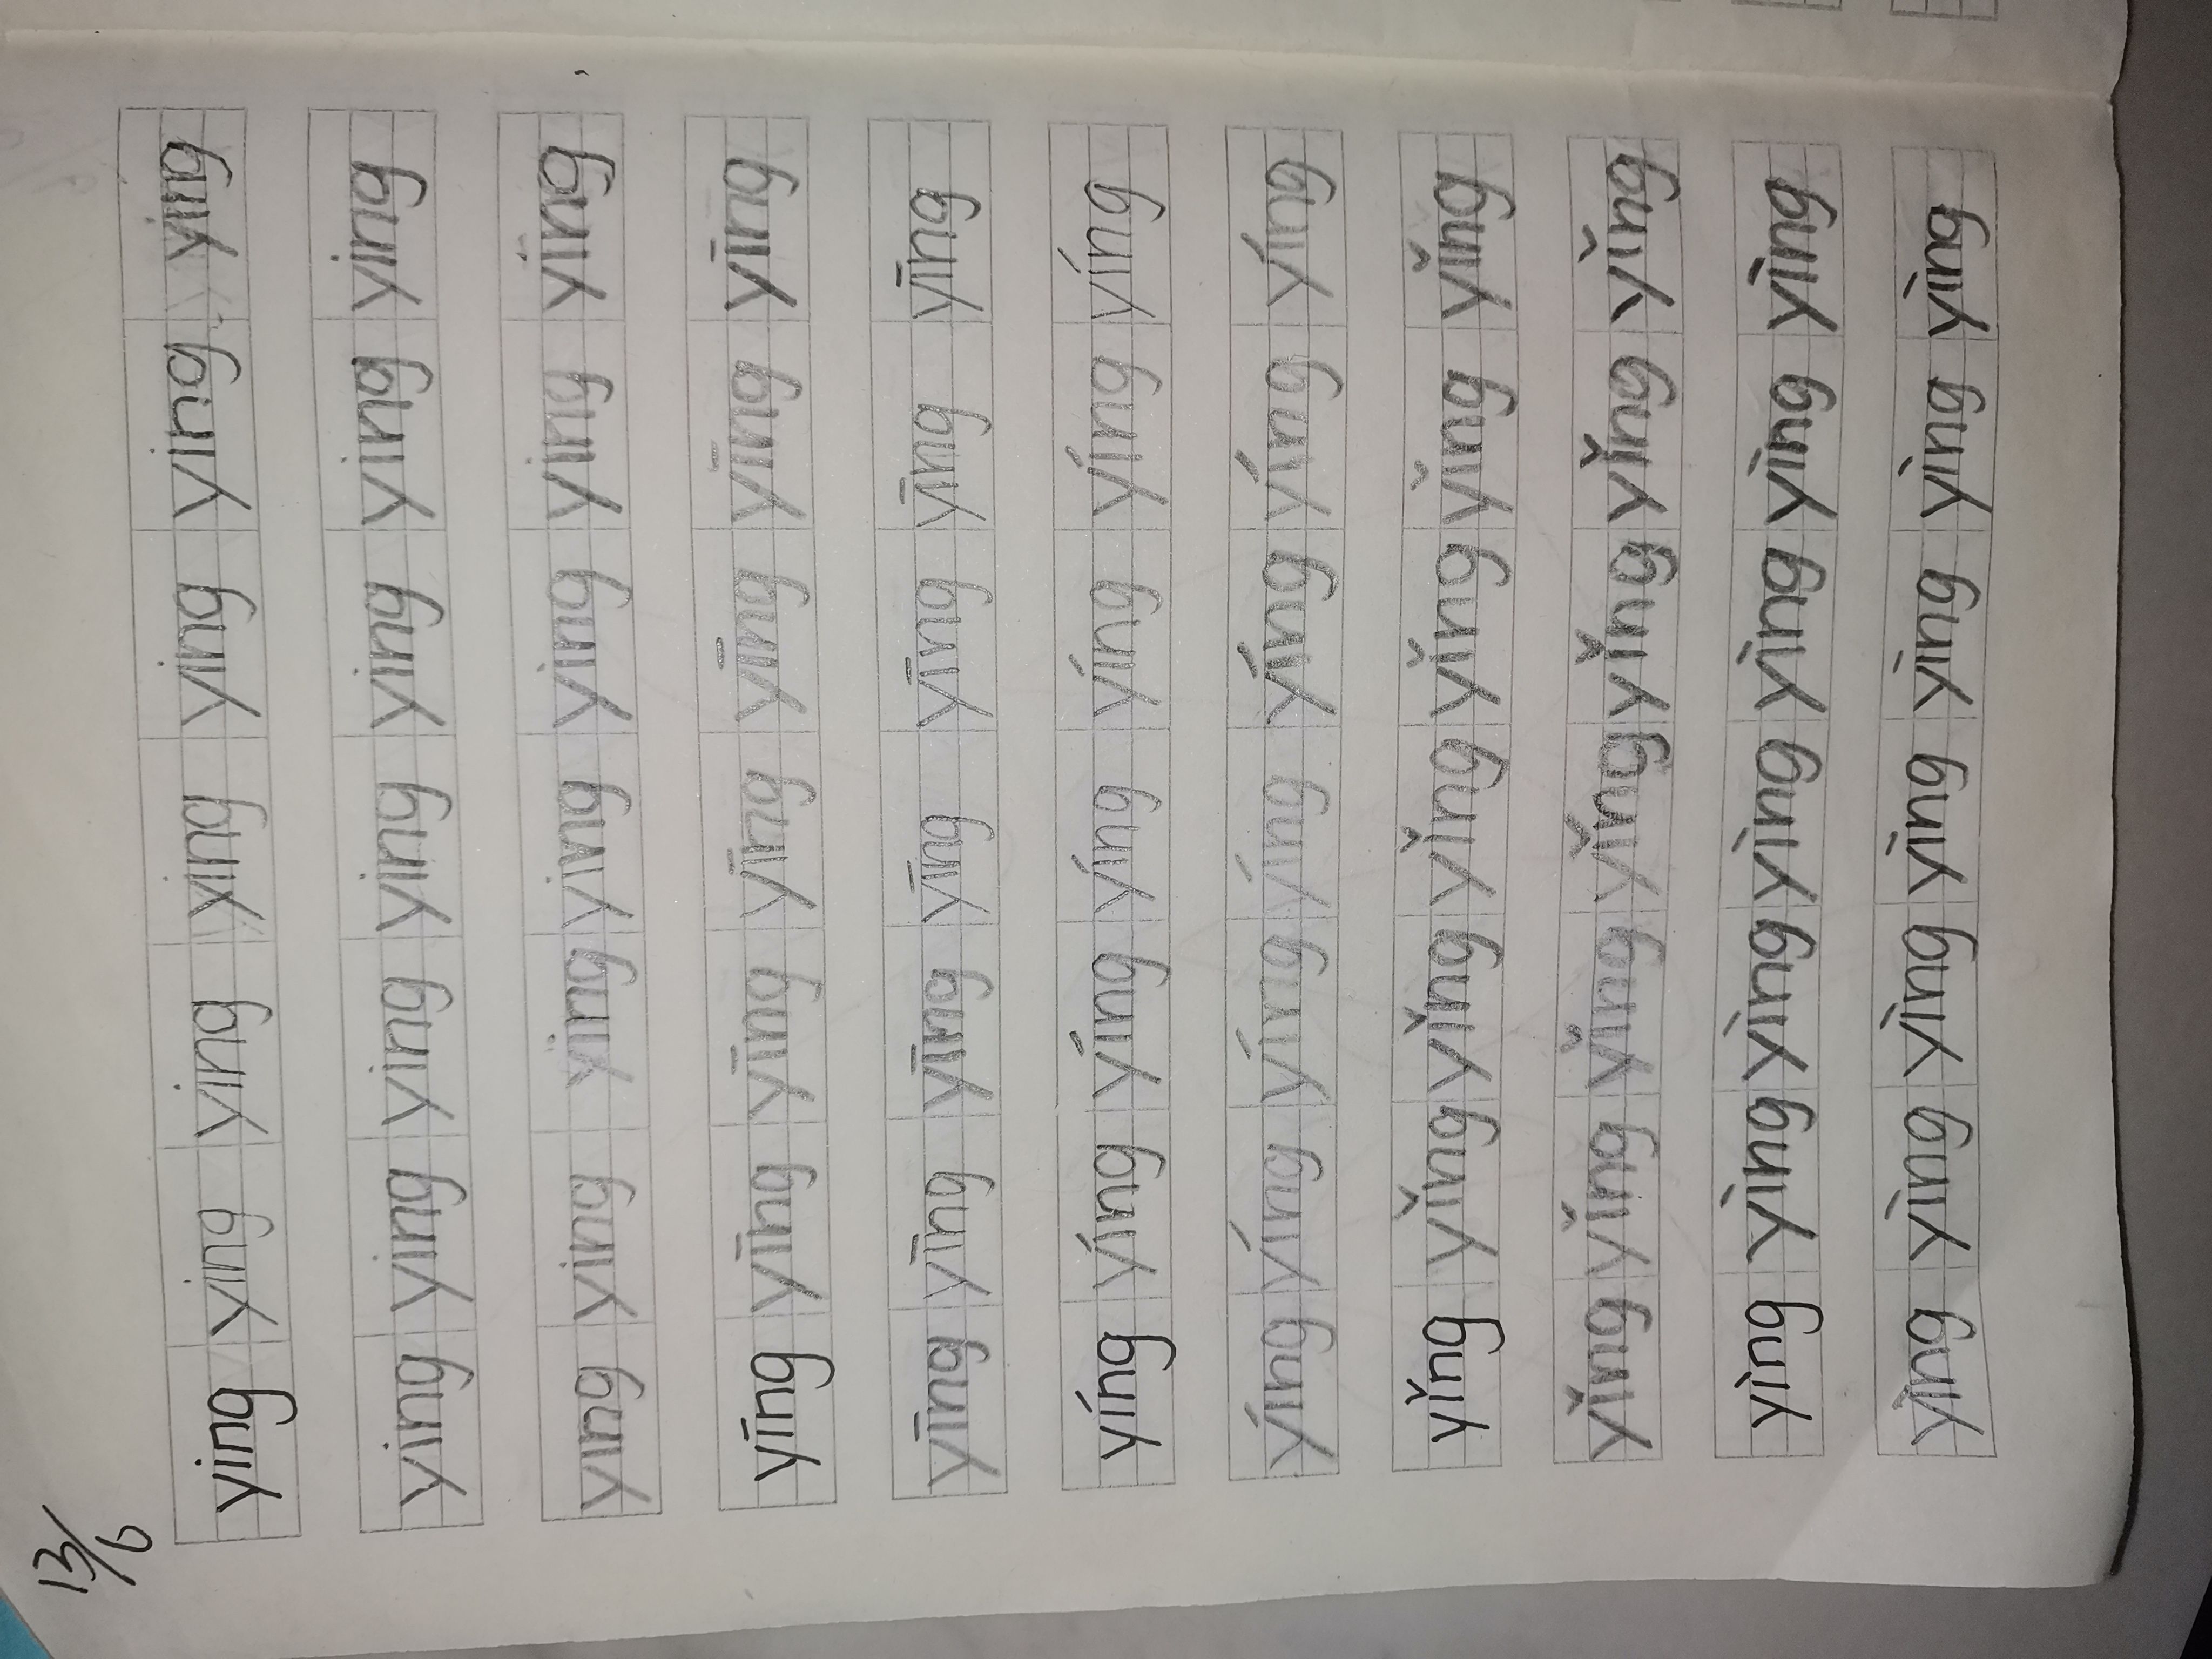 13/6
ying ying ying ying ying ying ying
ying ying ying ying ying ying ying
ying ying ying ying ying ying ying
yīng yīng yīng yīng yīng yīng yīng
yīng yīng yīng yīng yīng yīng yīng
yíng yíng yíng yíng yíng yíng yíng
yíng yíng yíng yíng yíng yíng yíng
yǐng yǐng yǐng yǐng yǐng yǐng yǐng
yǐng yǐng yǐng yǐng yǐng yǐng yǐng
yìng yìng yìng yìng yìng yìng yìng
yìng yìng yìng yìng yìng yìng yìng